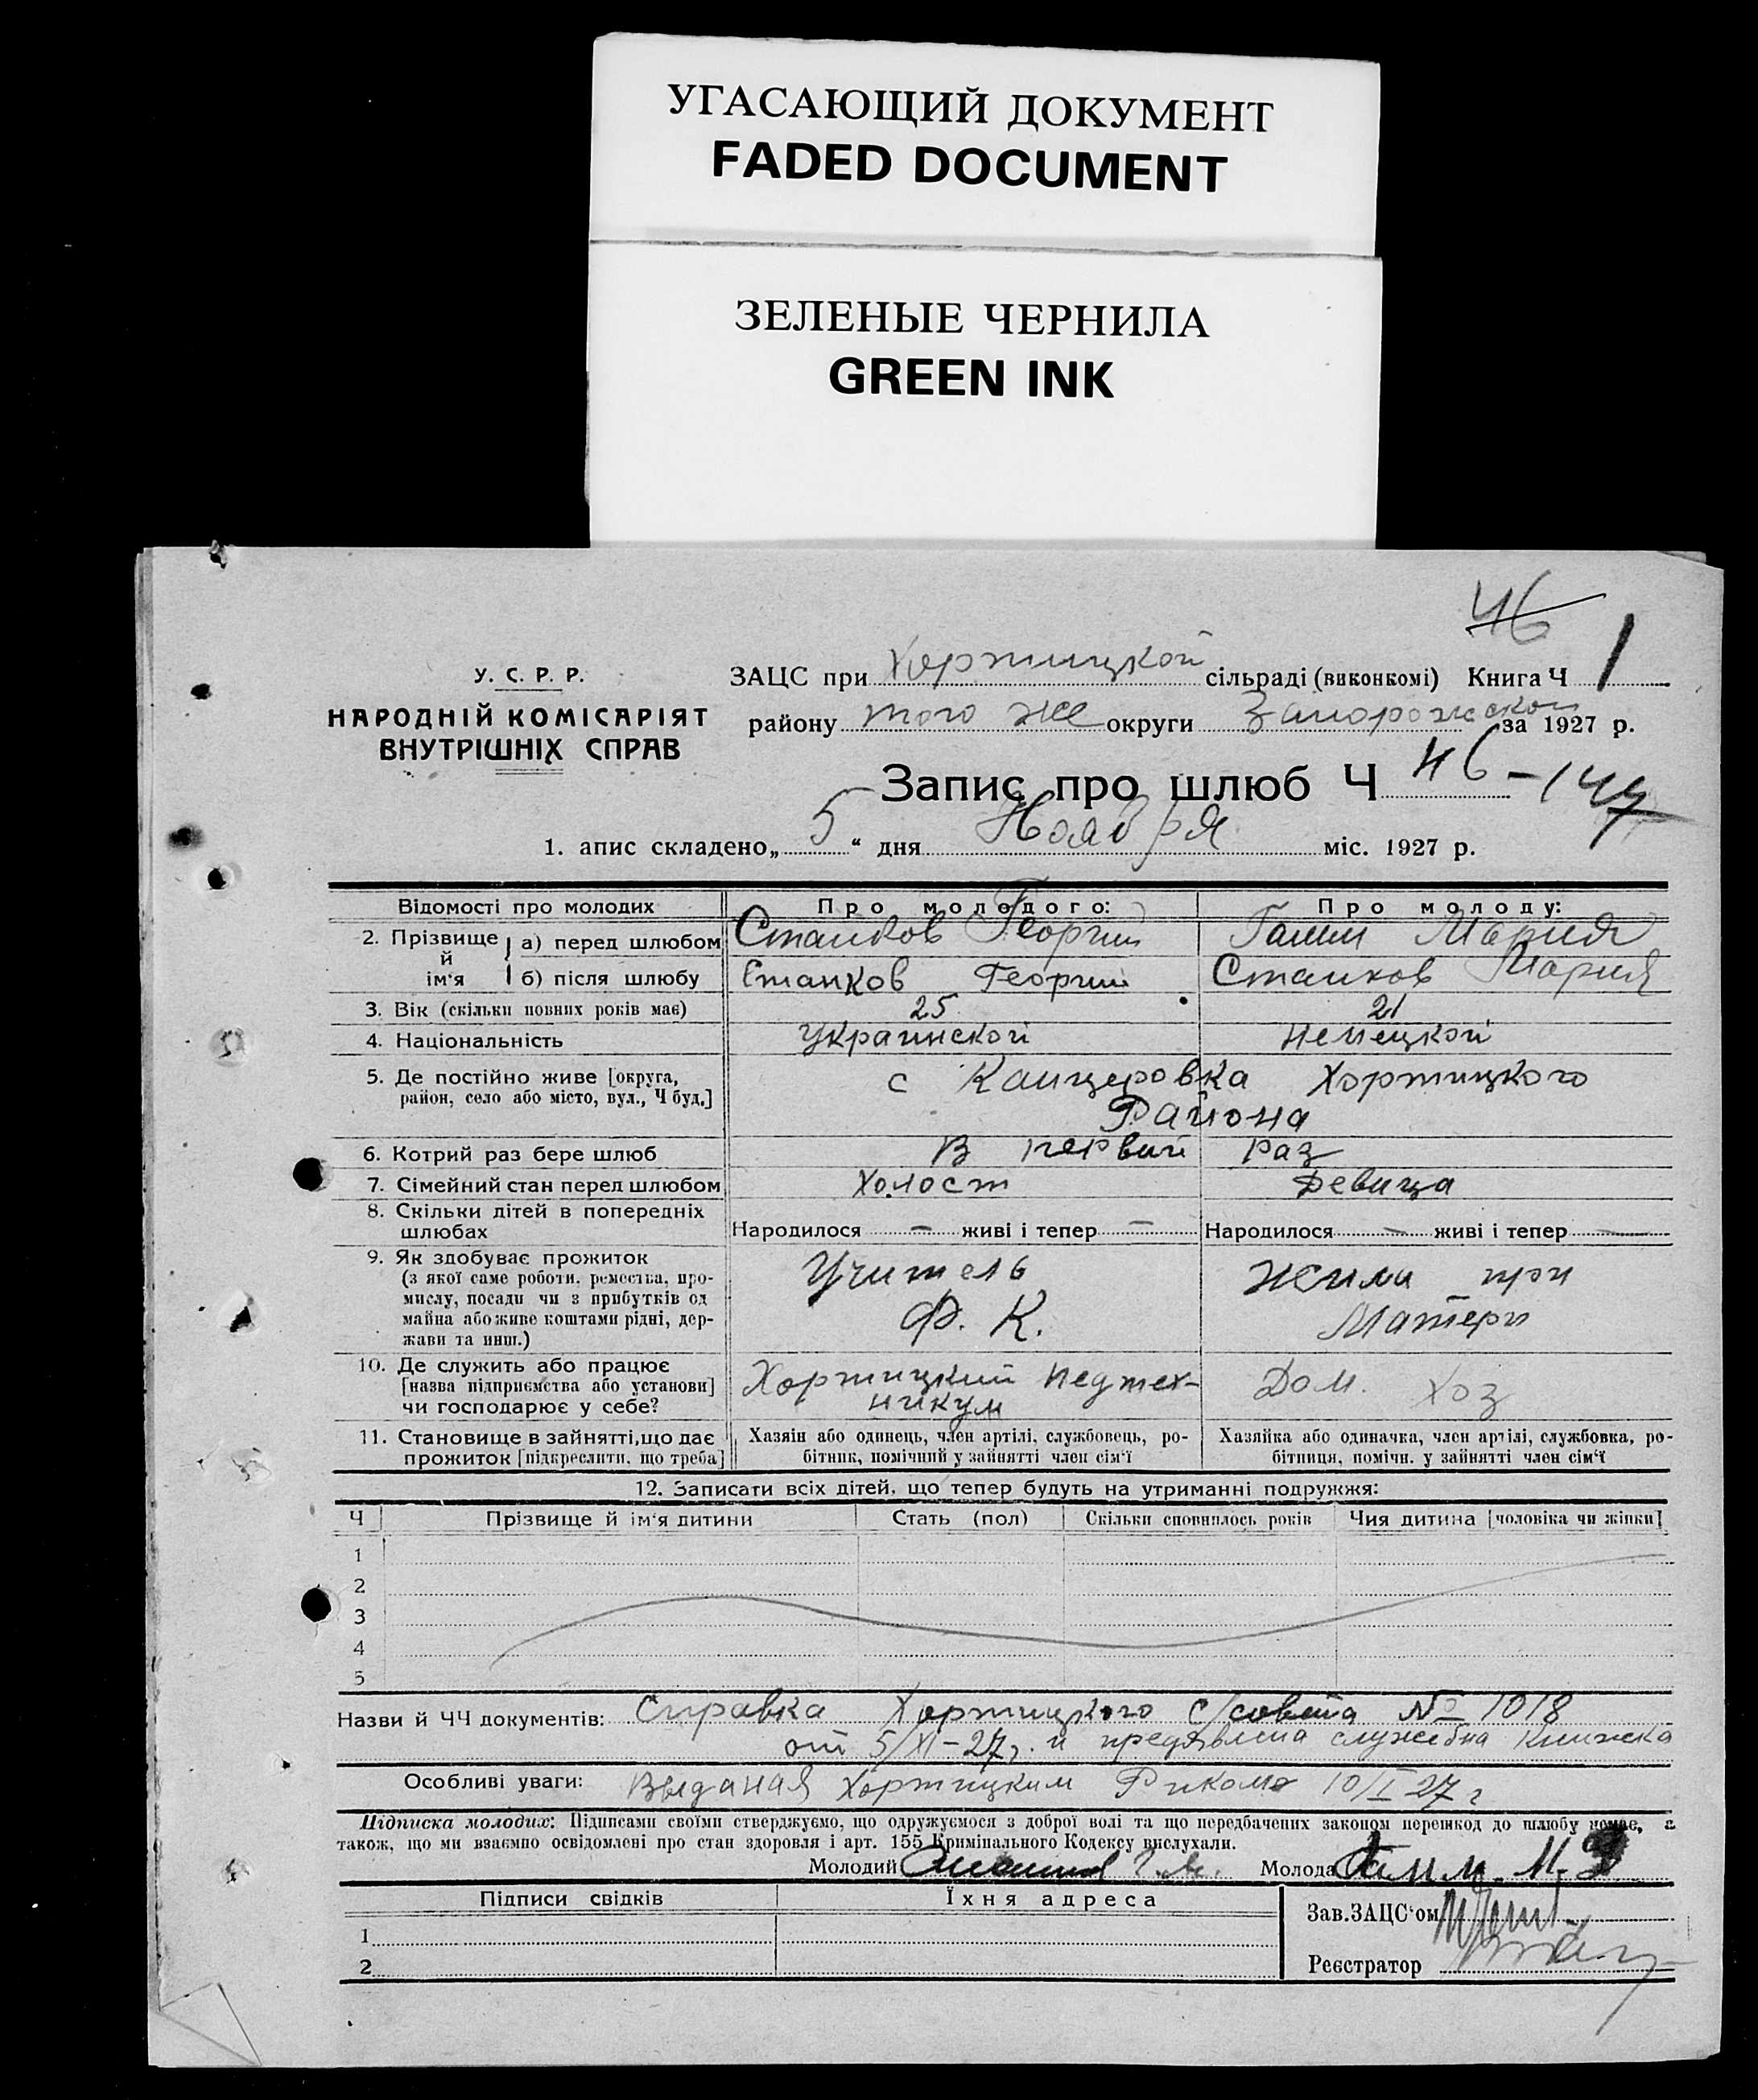 УГАСАЮЩИЙ ДОКУМЕНТ
FADED DOCUMENT
ЗЕЛЕНЫЕ ЧЕРНИЛА
GREEN INK
46
У. С. Р. Р.
НАРОДНІЙ КОМІСАРІЯТ
ВНУТРІШНІХ СПРАВ
ЗАЦС при Хортицкой сільраді (виконкомі) Книга Ч 1
району того же округи Запорожской за 1927 р.
Запис про шлюб Ч 46-147
1. апис складено „5“ дня Ноября міс. 1927 р.
Відомості про молодих Про молодого: Про молоду:
2. Прізвище й ім'я а) перед шлюбом Станков Георгий Гамм Мария
б) після шлюбу Станков Георгий Станков Мария
3. Вік (скільки повних років має) 25 21
4. Національність Украинской Немецкой
5. Де постійно живе [округа, с Канцеровка Хортицкого
район, село або місто, вул., Ч буд.] Района
6. Котрий раз бере шлюб В первый раз
7. Сімейний стан перед шлюбом Холост Девица
8. Скільки дітей в попередніх
шлюбах Народилося — живі і тепер — Народилося — живі і тепер —
9. Як здобуває прожиток Учитель Жила при
(з якої саме роботи, ремества, про-
мислу, посади чи з прибутків од Ф. К. Матери
майна або живе коштами рідні, дер-
жави та инш.)
10. Де служить або працює Хортицкий Педтех- Дом. хоз
[назва підприємства або установи] никум
чи господарює у себе?
11. Становище в зайнятті, що дає Хазяїн або одинець, член артілі, службовець, ро- Хазяйка або одиначка, член артілі, службовка, ро-
прожиток [підкреслити, що треба] бітник, помічний у зайнятті член сім'ї бітниця, помічн. у зайнятті член сім'ї
12. Записати всіх дітей, що тепер будуть на утриманні подружжя:
Ч Прізвище й ім'я дитини Стать (пол) Скільки сповнилось років Чия дитина [чоловіка чи жінки]
1
2
3
4
5
Назви й ЧЧ документів: Справка Хортицкого с/совета № 1018
от 5/XI-27г. и предявлена служебна книжка
Особливі уваги: Выданая Хортицким Риком 10/I 27 г
Підписка молодих: Підписами своїми стверджуємо, що одружуємося з доброї волі та що передбачених законом перешкод до шлюбу немає, а
також, що ми взаємно освідомлені про стан здоровля і арт. 155 Кримінального Кодексу вислухали.
Молодий Молода Гамм. М.
Підписи свідків Їхня адреса Зав.ЗАЦС'ом
1
2 Реєстратор